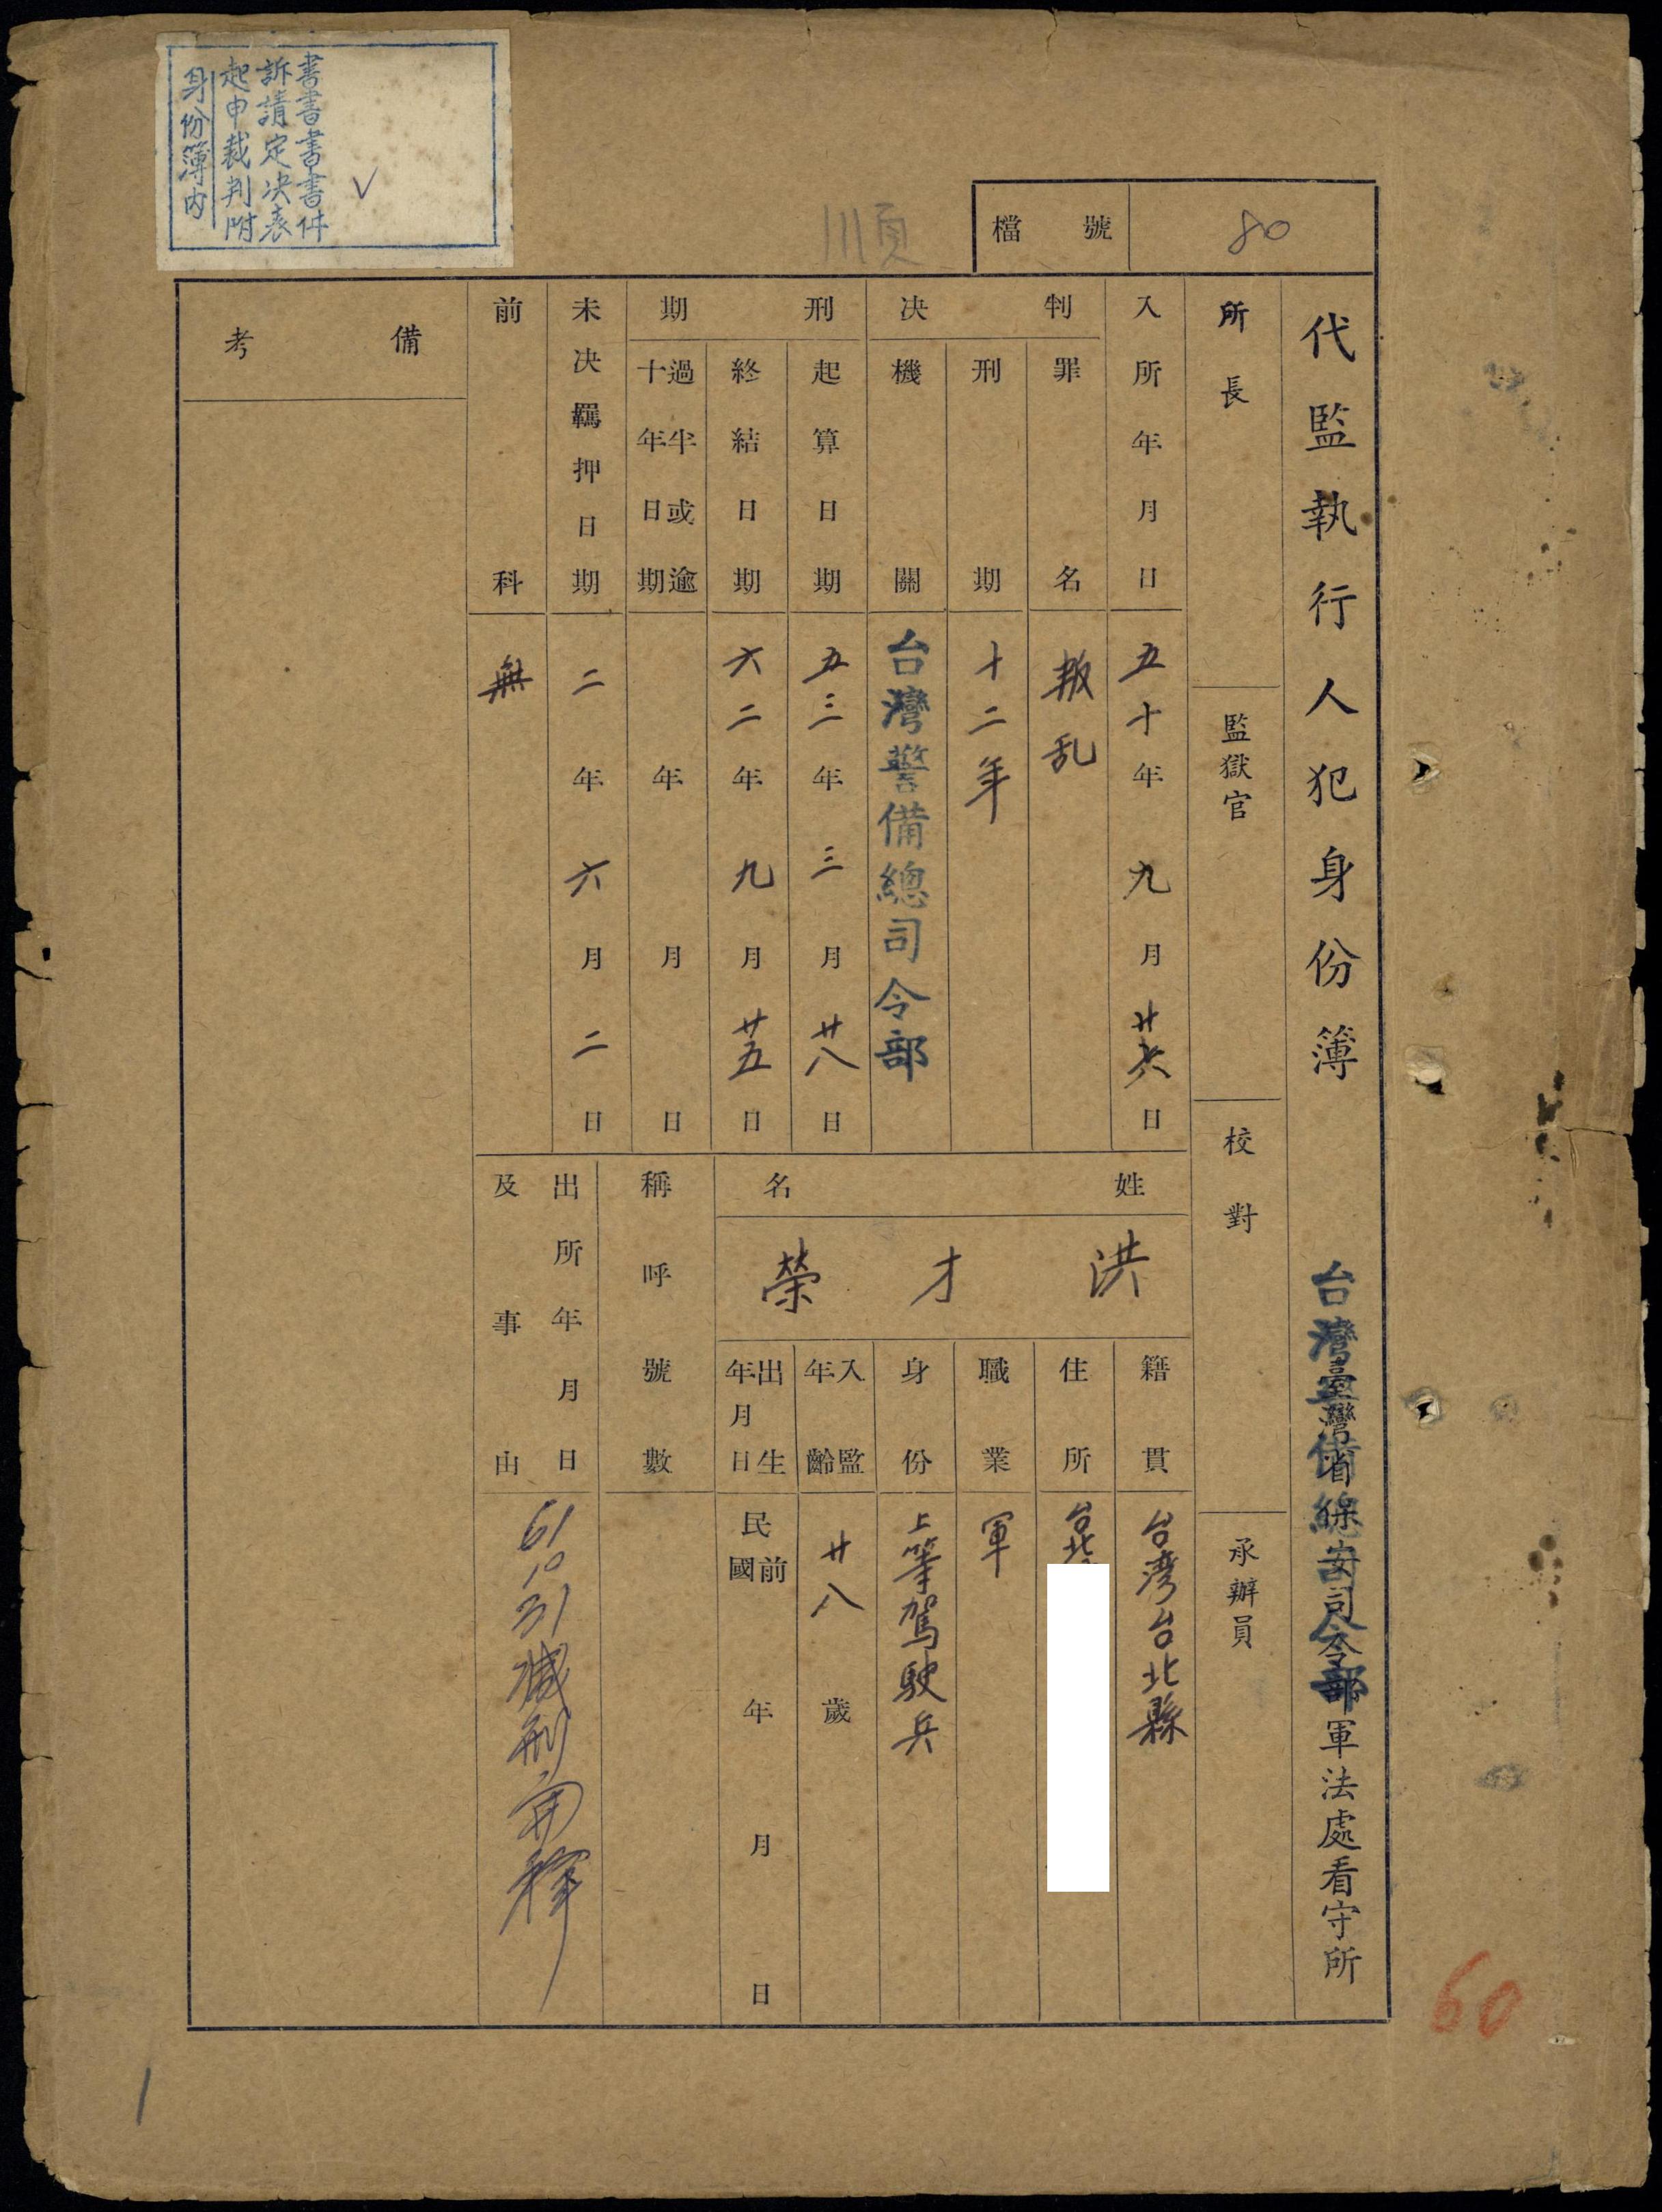 身份簿內
起訴書
申請書
裁定書
判決書
附表件
✓
順
檔號
80
代監執行人犯身份簿
台灣警備總司令部
臺灣省保安司令部軍法處看守所
所長
監獄官
校對
承辦員
入所年月日
五十年九月廿六日
判決
罪名
叛乱
刑期
十二年
機關
台灣警備總司令部
刑期
起算日期
五三年三月廿八日
終結日期
六二年九月廿五日
過半或逾十年日期
年月日
未決羈押日期
二年六月二日
前科
無
備考
姓名
洪才榮
籍貫
台湾台北縣
住所
台北
職業
軍
身份
上等駕駛兵
入監年齡
廿八歲
出生年月日
民國前年月日
稱呼號數
出所年月日及事由
61 10 31減刑開釋
60
1